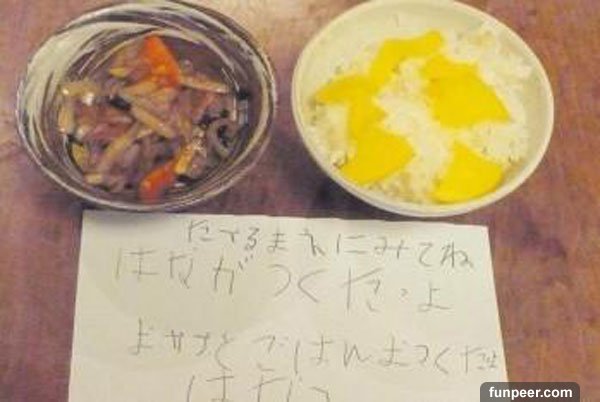 たべるまえにみてね
はながつくたっよ
おかずとごはんおつくたよ
funpeer.com